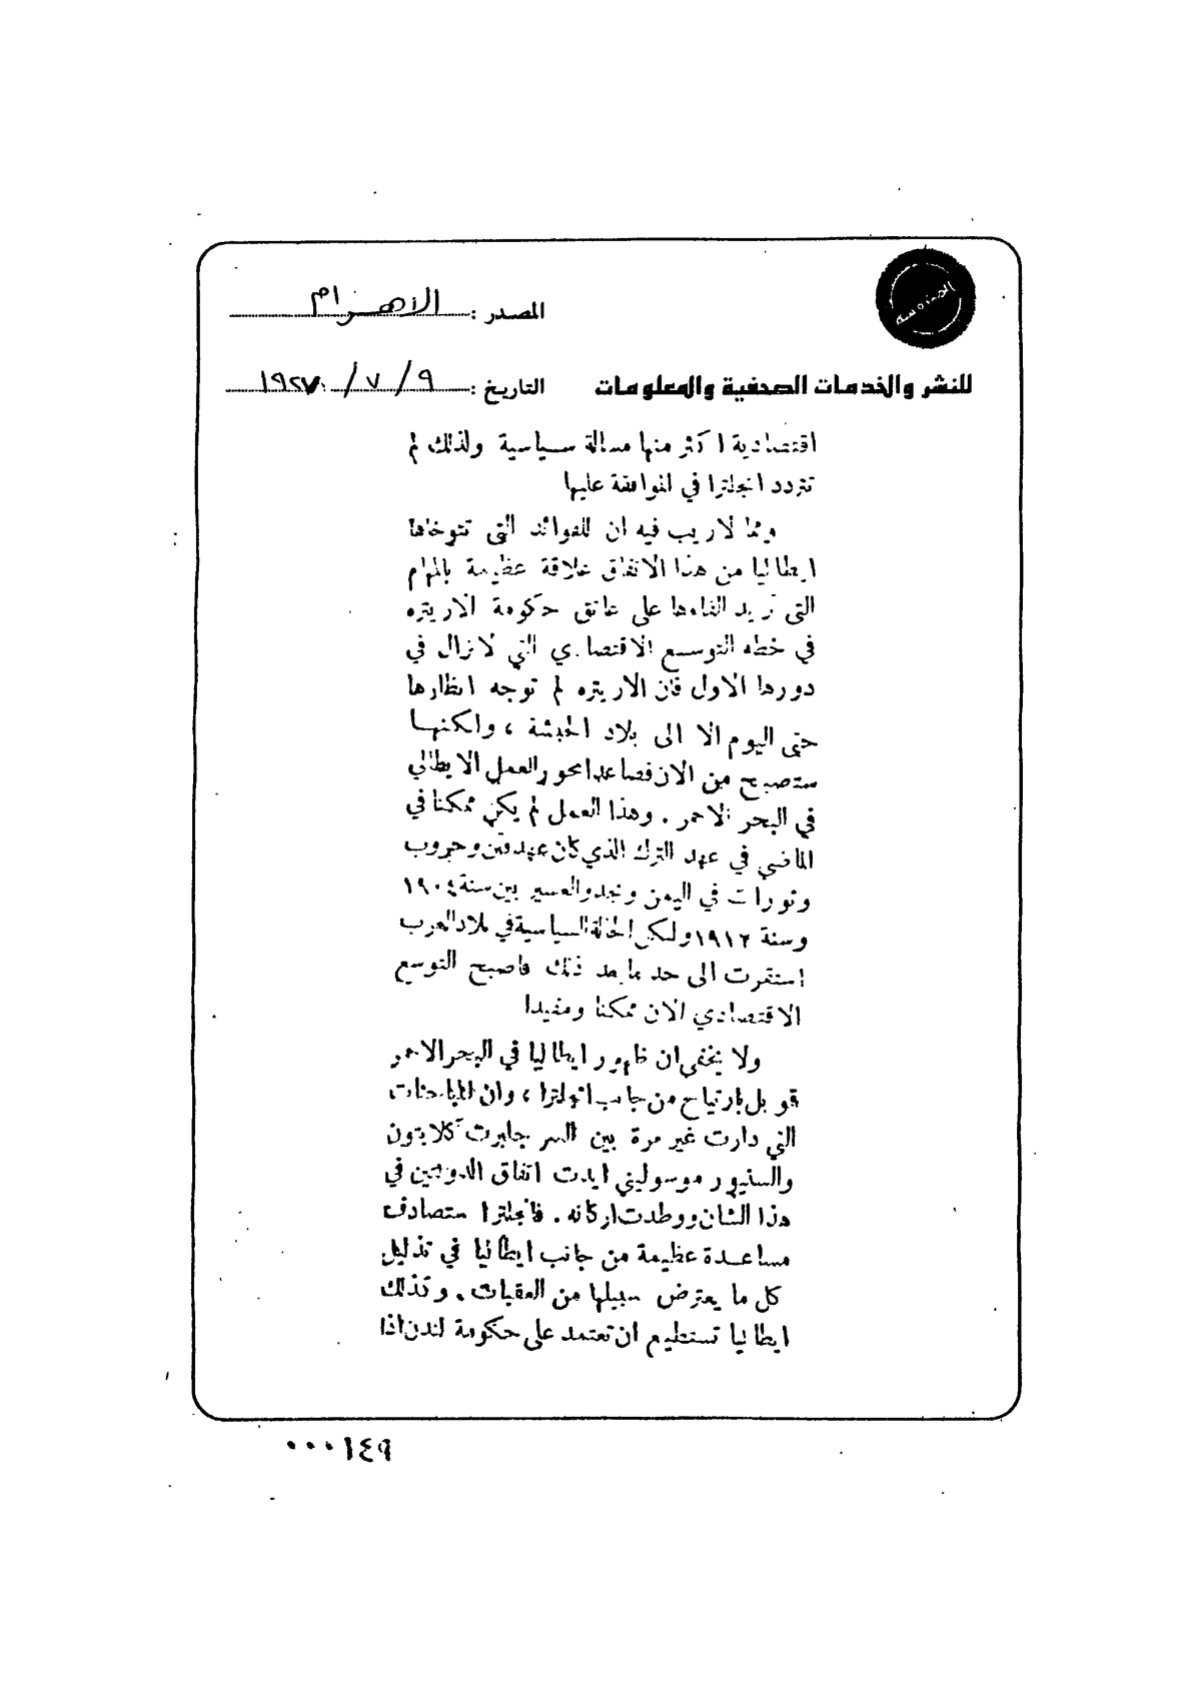 المصدر : الاهرام
للنشر والخدمات الصحفية والمعلومات
التاريخ : ٩ / ٧ / ١٩٢٧
اقتصادية اكثر منها مسالة سياسية ولذلك لم
تتردد انجلترا في الموافقة عليها
ومما لاريب فيه ان للفوائد التي تتوخاها
ايطاليا من هذا الاتفاق علاقة عظيمة بالمهام
التي تريد القاءها على عاتق حكومة الاريتره
في خطه التوسع الاقتصادي التي لا تزال في
دورها الاول فان الاريتره لم توجه انظارها
حتى اليوم الا الى بلاد الحبشة ، ولكنها
ستصبح من الان فصاعدا محور العمل الايطالي
في البحر الاحمر . وهذا العمل لم يكن ممكنا في
الماضي في عهد الترك الذي كان عهد فتن وحروب
وثورات في اليمن ونجد والعسير بين سنة ١٩٠٤
وسنة ١٩١٢ ولكن الحالة السياسية في بلاد العرب
استقرت الى حد ما بعد ذلك فاصبح التوسع
الاقتصادي الان ممكنا ومفيدا
ولا يخفى ان ظهور ايطاليا في البحر الاحمر
قوبل بارتياح من جانب انجلترا ، وان المباحثات
التي دارت غير مرة بين السر جلبرت كلايتون
والسنيور موسوليني ايدت اتفاق الدولتين في
هذا الشان ووطدت اركانه . فانجلترا ستصادف
مساعدة عظيمة من جانب ايطاليا في تذليل
كل ما يعترض سبيلها من العقبات . وكذلك
ايطاليا تستطيع ان تعتمد على حكومة لندن اذا
٠٠٠١٤٩